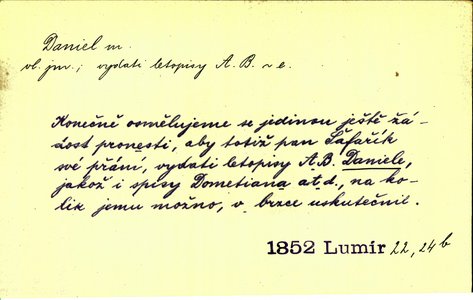 Daniel m.
vl. jm.; vydati letopisy A. B. ~e.
Konečně osmělujeme se jedinou ještě žá-
dost pronesti, aby totiž pan Šafařík
své přání, vydati letopisy A. B. Daniele,
jakož i spisy Dometiana a t. d., na ko-
lik jemu možno, v brzce uskutečnil.
1852 Lumír 22, 24b